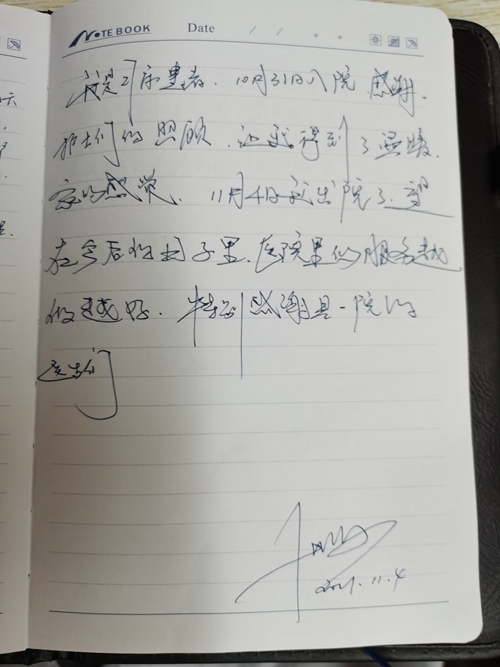 NOTEBOOK Date / / . .
我是21床患者. 10月31日入院. 感谢.
护士们的照顾. 让我得到了温暖.
家的感觉. 11月4日我出院了. 望
在今后的日子里. 医院里的服务越
做越好. 特别感谢县一院的
医护们
2021.11.4